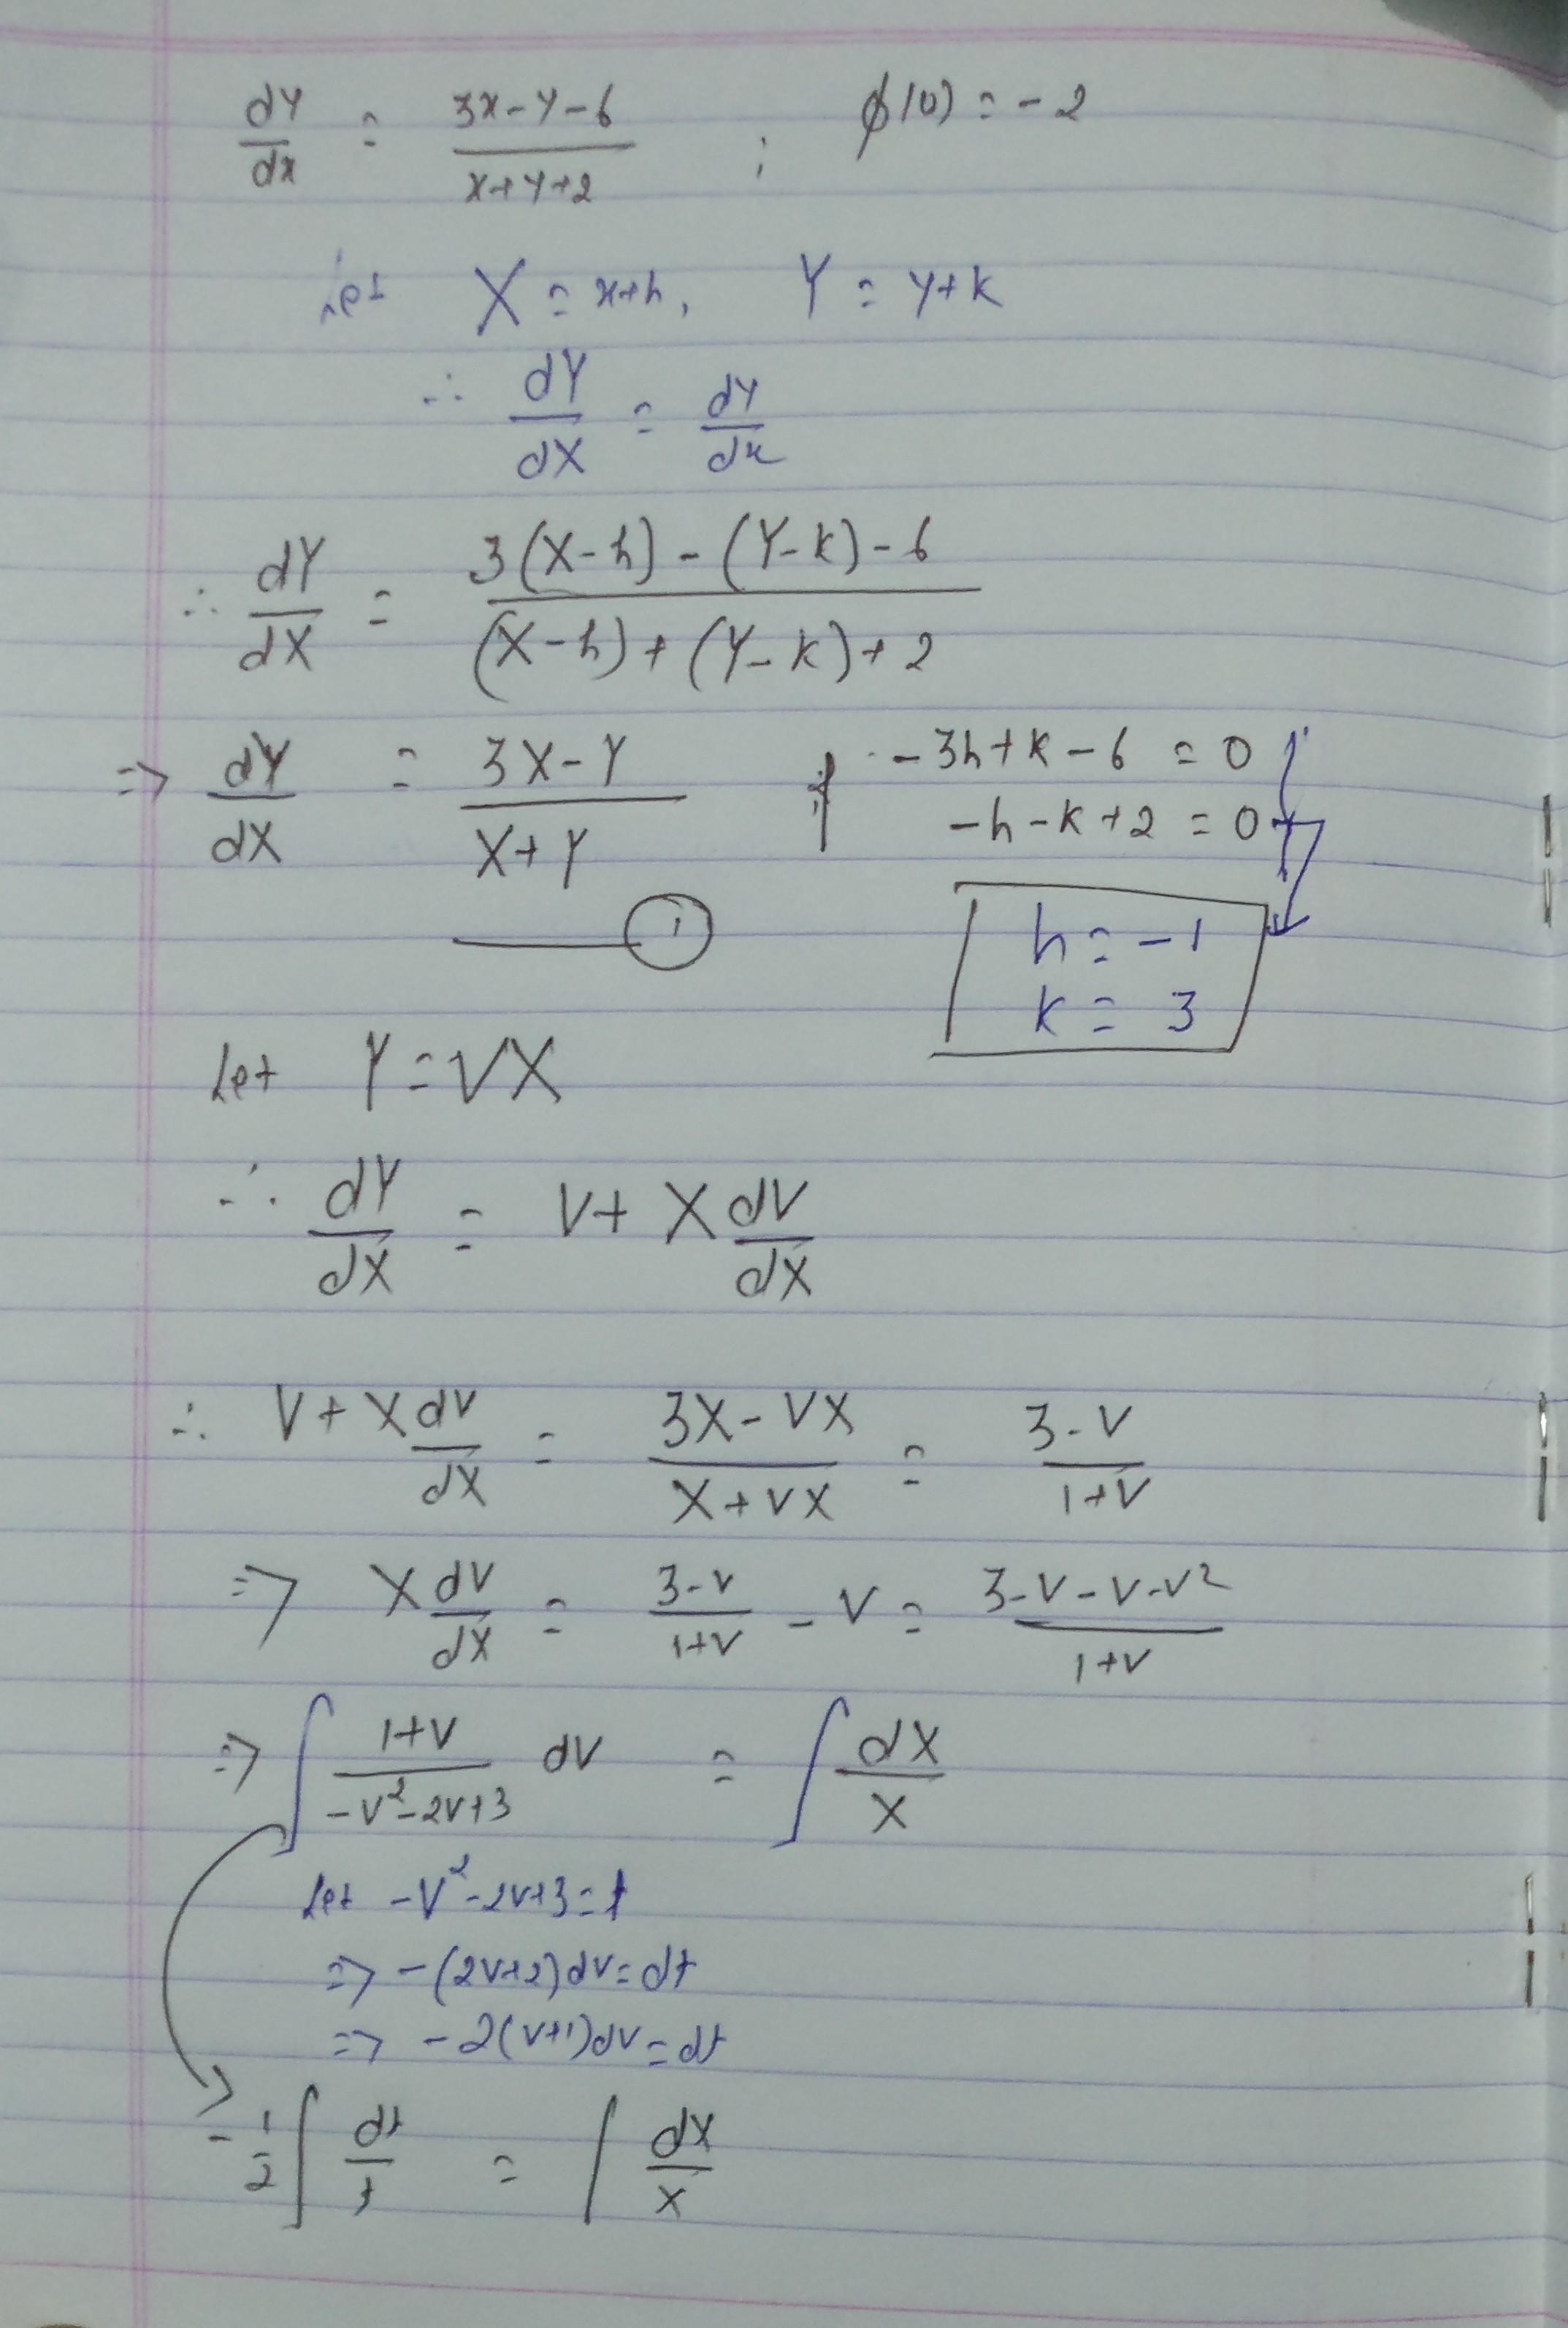 dy/dx = (3x-y-6)/(x+y+2) ; φ(0) = -2
Let X = x+h, Y = y+k
∴ dY/dX = dy/dx
∴ dY/dX = (3(X-h) - (Y-k) - 6)/((X-h) + (Y-k) + 2)
⇒ dY/dX = (3X-Y)/(X+Y) if -3h+k-6 = 0
-h-k+2 = 0
1
h = -1
k = 3
Let Y = VX
∴ dY/dX = V + X dV/dX
∴ V + X dV/dX = (3X-VX)/(X+VX) = (3-V)/(1+V)
⇒ X dV/dX = (3-V)/(1+V) - V = (3-V-V-V²)/(1+V)
⇒ ∫ (1+V)/(-V²-2V+3) dV = ∫ dX/X
Let -V²-2V+3 = t
⇒ -(2V+2)dV = dt
⇒ -2(V+1)dV = dt
-1/2 ∫ dt/t = ∫ dX/X